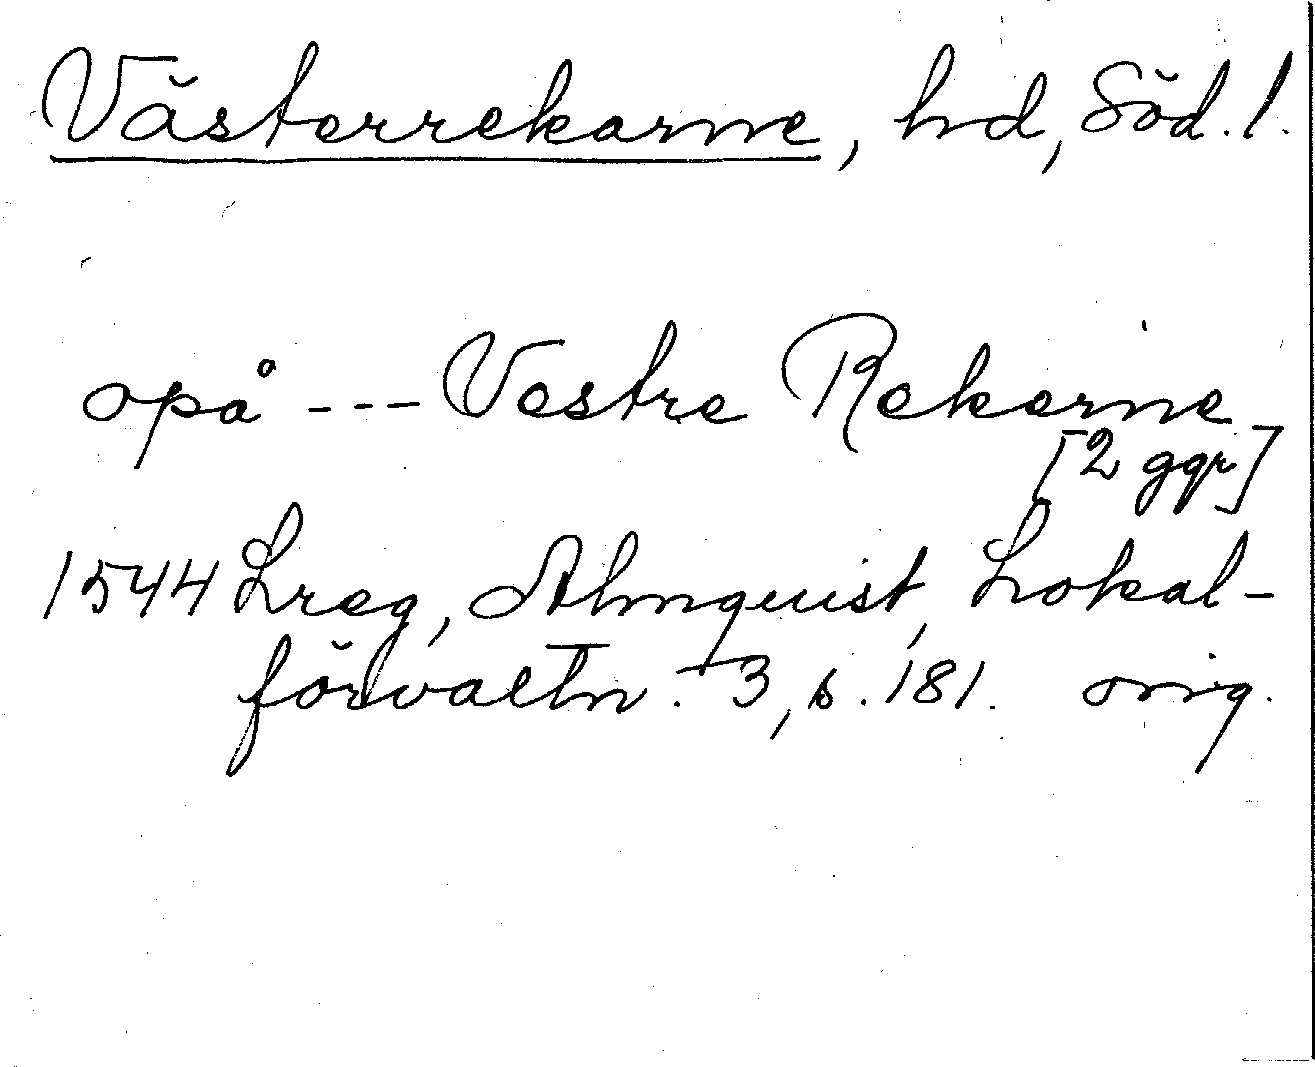 Västerrekarne, hd, Söd. l.
opå --- Vestre Rekerne
[2 ggr]
1544 Lreg, Almquist, Lokal-
förvaltn. 3, s. 181. orig.